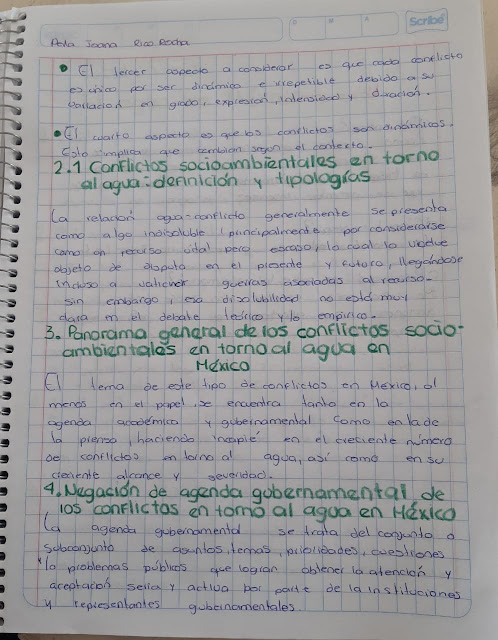 D M A Scribe
Perla Joana Rico Rocha
• El tercer aspecto a considerar es que cada conflicto
es único por ser dinámico e irrepetible debido a su
variación en grado, expresión, intensidad y duración.
• El cuarto aspecto es que los conflictos son dinámicos.
Esto implica que cambian según el contexto.
2.1 Conflictos socioambientales en torno
al agua: definición y tipologías
La relación agua-conflicto generalmente se presenta
como algo indisoluble principalmente por considerarse
como un recurso vital pero escaso, lo cual lo vuelve
objeto de disputa en el presente y futuro, llegándose
incluso a vaticinar guerras asociadas al recurso.
sin embargo, esa disolubilidad no está muy
clara en el debate teórico y lo empírico.
3. Panorama general de los conflictos socio-
ambientales en torno al agua en
México
El tema de este tipo de conflictos en México, al
menos en el papel, se encuentra tanto en la
agenda académica y gubernamental como en la de
la prensa, haciendo incapié en el creciente número
de conflictos en torno al agua, así como en su
creciente alcance y severidad.
4. Negación de agenda gubernamental de
los conflictos en torno al agua en México
La agenda gubernamental se trata del conjunto o
subconjunto de asuntos, temas, prioridades, cuestiones
la problemas públicos que logran obtener la atención y
aceptación seria y activa por parte de la instituciones
y representantes gubernamentales